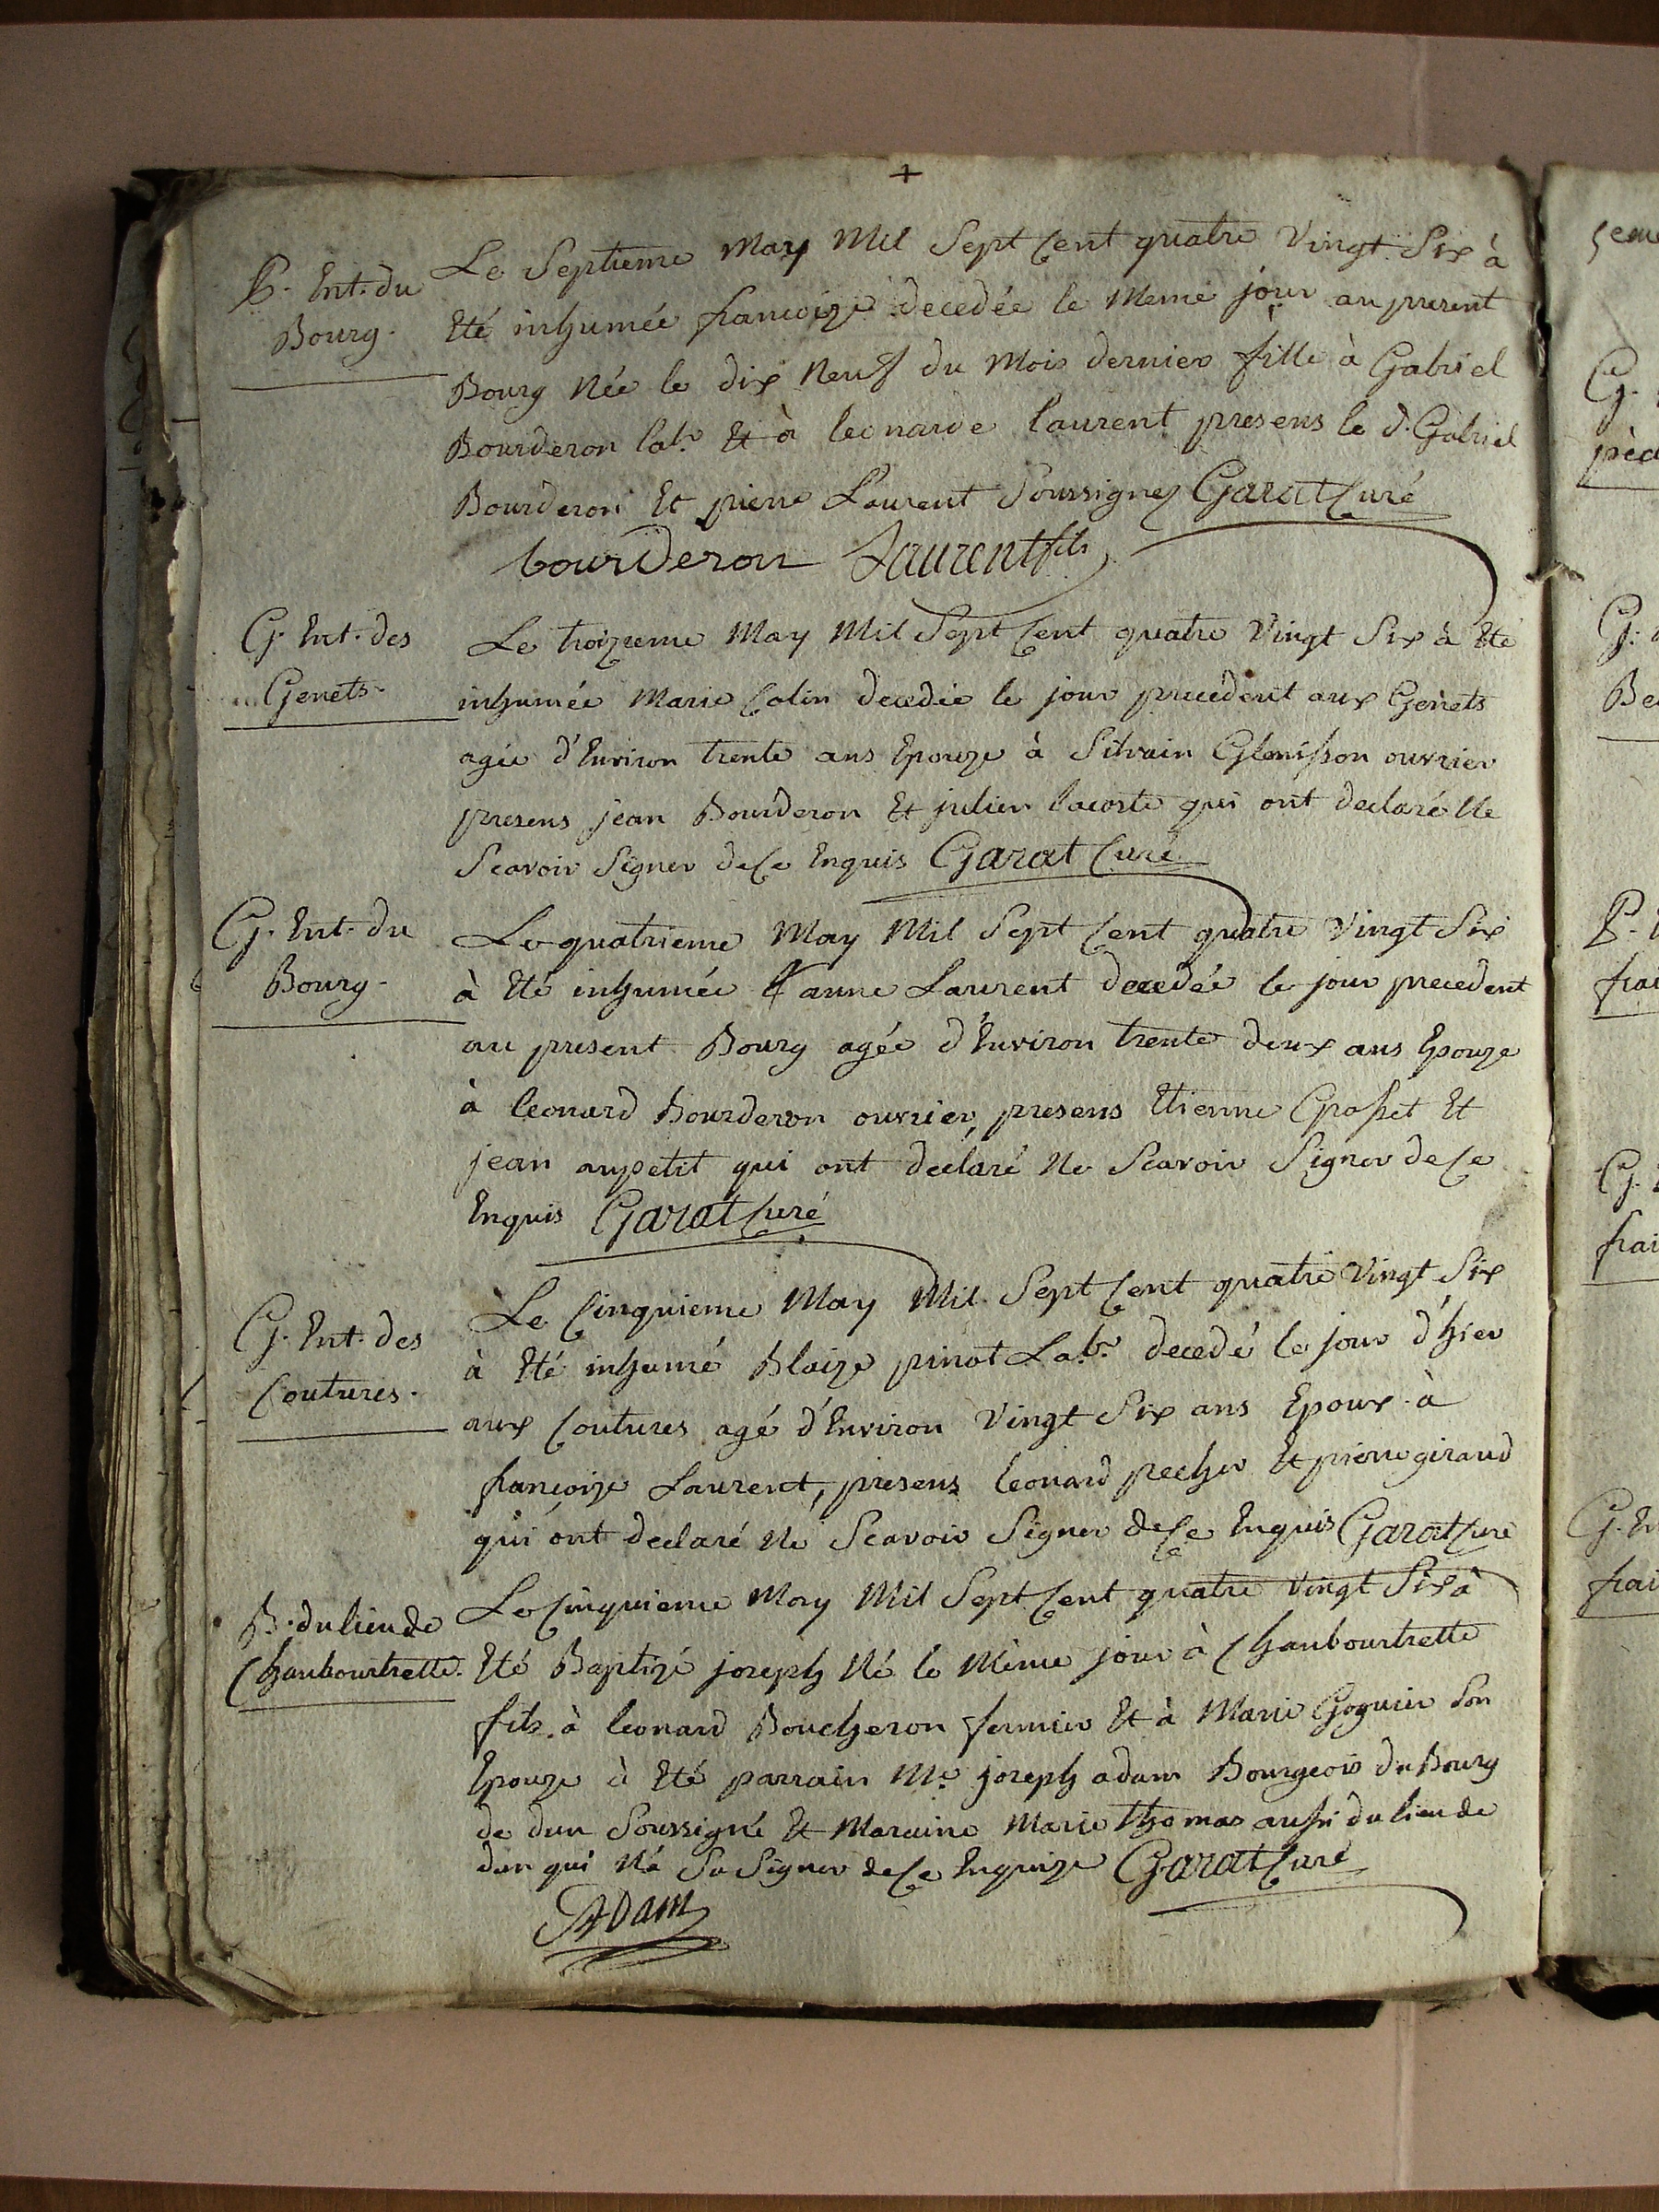 +
P. Ent. du
Bourg.
Le Septieme May Mil Sept Cent quatre Vingt Six à
Eté inhumée francoize decedée le Meme jour au present
Bourg Née le dix Neuf du Mois dernier fille à Gabriel
Bourderon lab.r Et à leonarde laurent presens le d. Gabriel
Bourderon Et pierre Laurent Soussignez Garat Curé
bourderon Laurent fils
G. Ent. des
Genets.
Le troizieme May Mil Sept Cent quatre Vingt Six à Eté
inhumée Marie Colin decedée le jour precedent aux Genets
agée d'Environ trente ans Epouze à Silvain Glenisson ouvrier
presens jean Bourderon Et julien lacoste qui ont declaré Ne
Scavoir Signer de Ce Enquis Garat Curé
G. Ent. du
Bourg.
Le quatrieme May Mil Sept Cent quatre Vingt Six
à Eté inhumée anne Laurent decedée le jour precedent
au present Bourg agée d'Environ trente deux ans Epouze
à leonard Bourderon ouvrier, presens Etienne Grosset Et
jean aupetit qui ont declaré Ne Scavoir Signer de Ce
Enquis Garat Curé
G. Ent. des
Coutures.
Le Cinquieme May Mil Sept Cent quatre Vingt Six
à Eté inhumé Blaize pinot Lab.r decedé le jour d'hier
aux Coutures agé d'Environ Vingt Six ans Epoux à
françoize Laurent, presens leonard pecher Et pierre giraud
qui ont declaré Ne Scavoir Signer de Ce Enquis Garat Curé
B. du lieu de
Chanbourtrette.
Le Cinquieme May Mil Sept Cent quatre Vingt Six à
Eté Baptizé joseph Né le Mème jour à Chanbourtrette
fils à leonard Boucheron fermier Et à Marie Goguier Son
Epouze à Eté parrain M.e joseph adam Bourgeois du Bourg
de dun Soussigné Et Maraine Marie thomas aussi du lieu de
dun qui N'a Su Signer de Ce Enquize Garat Curé
ADam